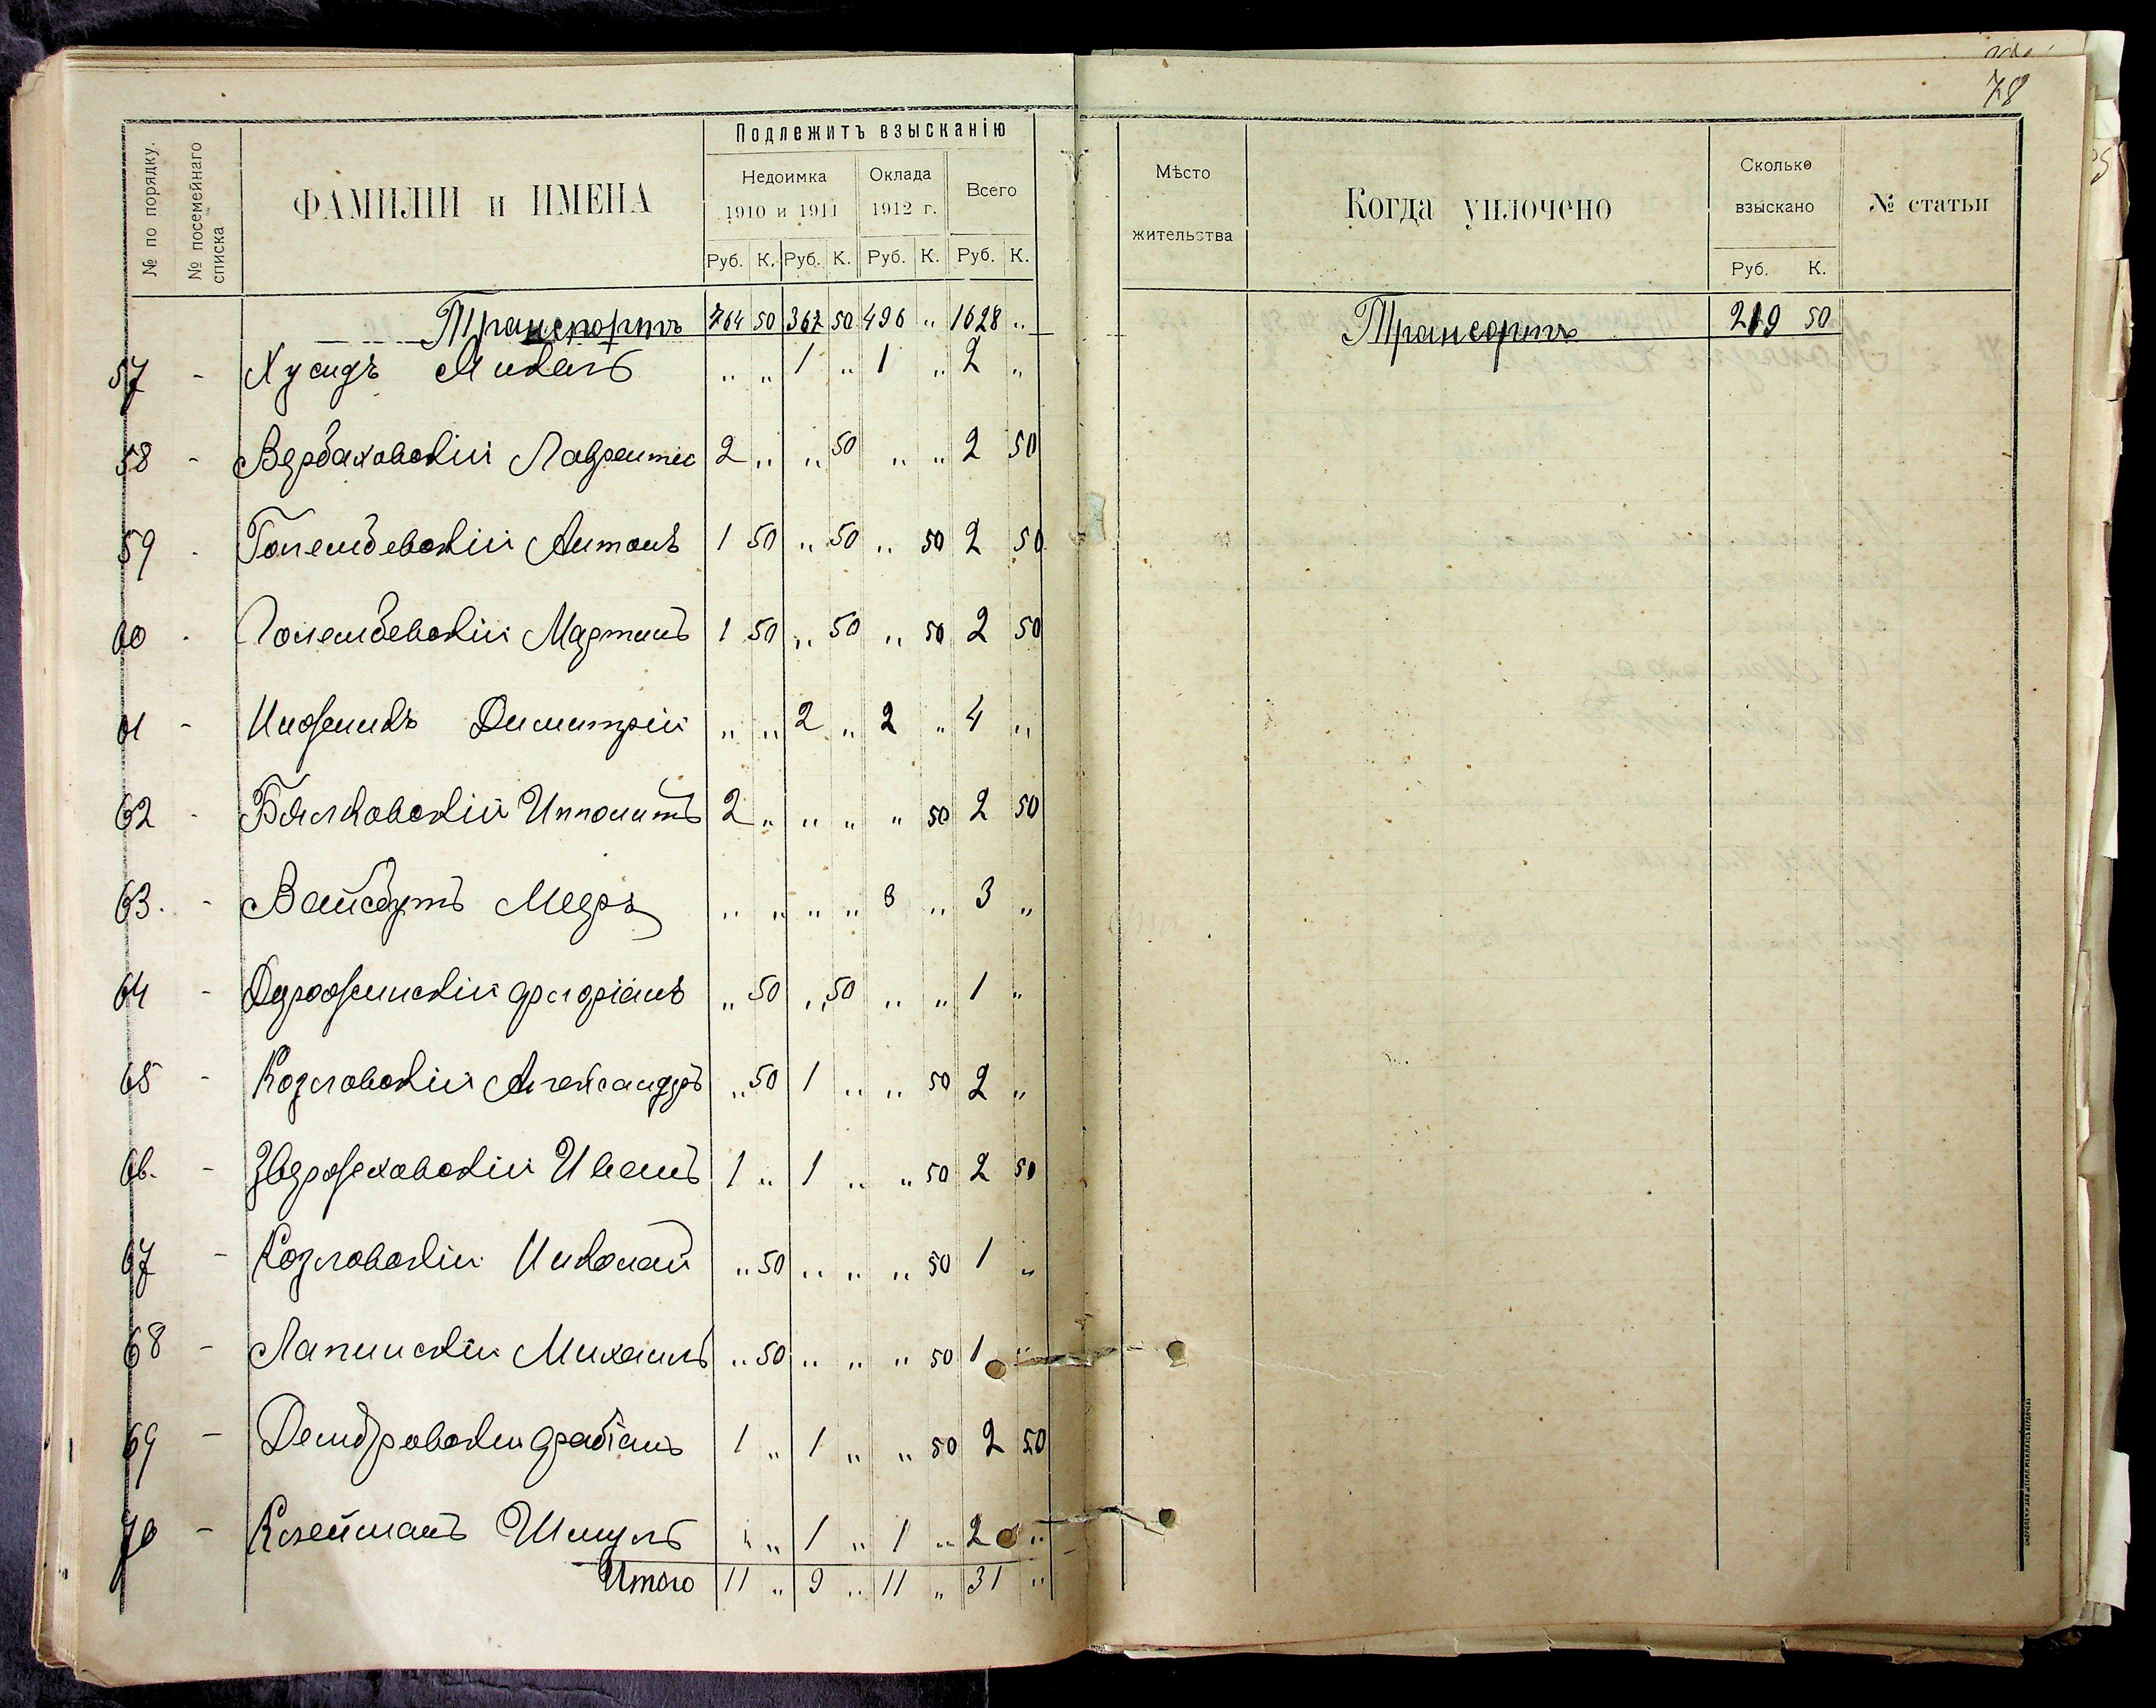 78
№ по порядку.
№ посемейнаго списка
ФАМИЛІИ и ИМЕНА
Подлежитъ взысканію
Недоимка 1910 и 1911
Оклада 1912 г.
Всего
Руб. К. Руб. К. Руб. К. Руб. К.
Мѣсто жительства
Когда уплочено
Сколько взыскано
Руб. К.
№ статьи
Транспортъ 764 50 367 50 496 " 1628 "
Трансортъ 219 50
57 - Хусидъ " " 1 " 1 " 2 "
58 - Вербаховскій Лаврентій 2 " " 50 " " 2 50
59 - Голембевскій Антонъ 1 50 " 50 " 50 2 50
60 - Голембевскій Мартинъ 1 50 " 50 " 50 2 50
61 - Димитрій " " 2 " 2 " 4 "
62 - Бялковскій Ипполитъ 2 " " " " 50 2 50
63. - Вайсбутъ " " " " 3 " 3 "
64 - Флоріанъ " 50 " 50 " " 1 "
65 - Козловскій Александръ " 50 1 " " 50 2 "
66. - Звержховскій Иванъ 1 " 1 " " 50 2 50
67 - Козловскій Николай " 50 " " " 50 1 "
68 - Лапинскій Михаилъ " 50 " " " 50 1 "
69 - Дембровскій Фабіанъ 1 " 1 " " 50 2 50
70 - Клейманъ Шмуль " " 1 " 1 " 2 "
Итого 11 " 9 " 11 " 31 "